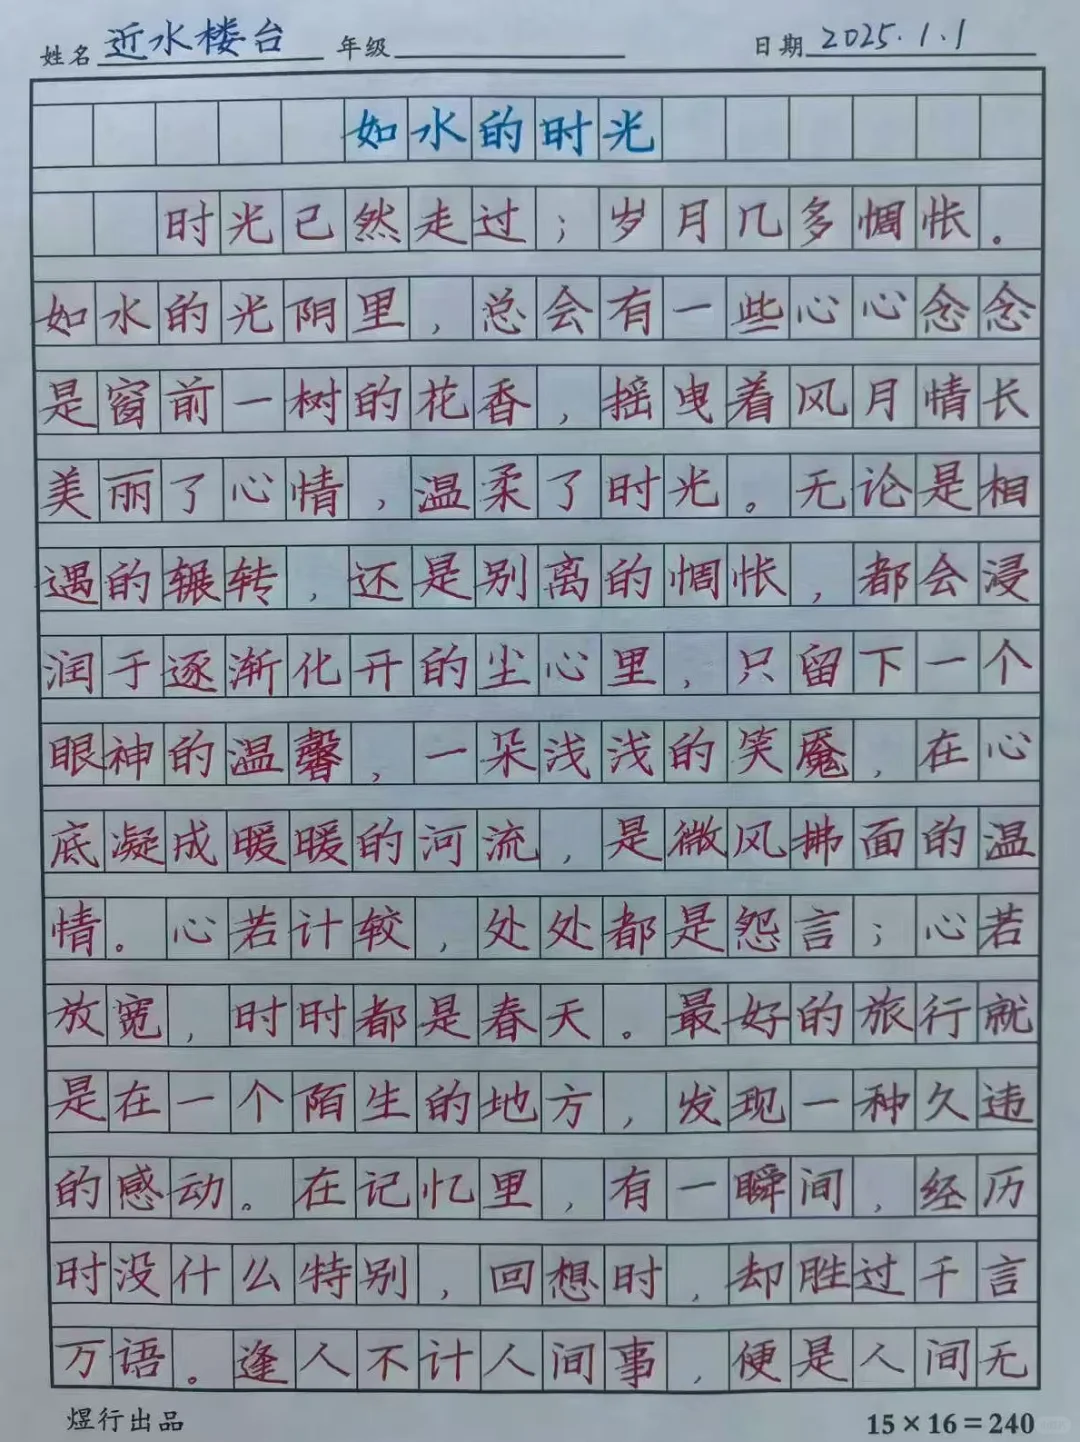 姓名 近水楼台 年级 日期 2025.1.1
如水的时光
时光已然走过；岁月几多惆怅。
如水的光阴里，总会有一些心心念念
是窗前一树的花香，摇曳着风月情长
美丽了心情，温柔了时光。无论是相
遇的辗转，还是别离的惆怅，都会浸
润于逐渐化开的尘心里，只留下一个
眼神的温馨，一朵浅浅的笑魇，在心
底凝成暖暖的河流，是微风拂面的温
情。心若计较，处处都是怨言；心若
放宽，时时都是春天。最好的旅行就
是在一个陌生的地方，发现一种久违
的感动。在记忆里，有一瞬间，经历
时没什么特别，回想时，却胜过千言
万语。逢人不计人间事，便是人间无
煜行出品 15×16=240